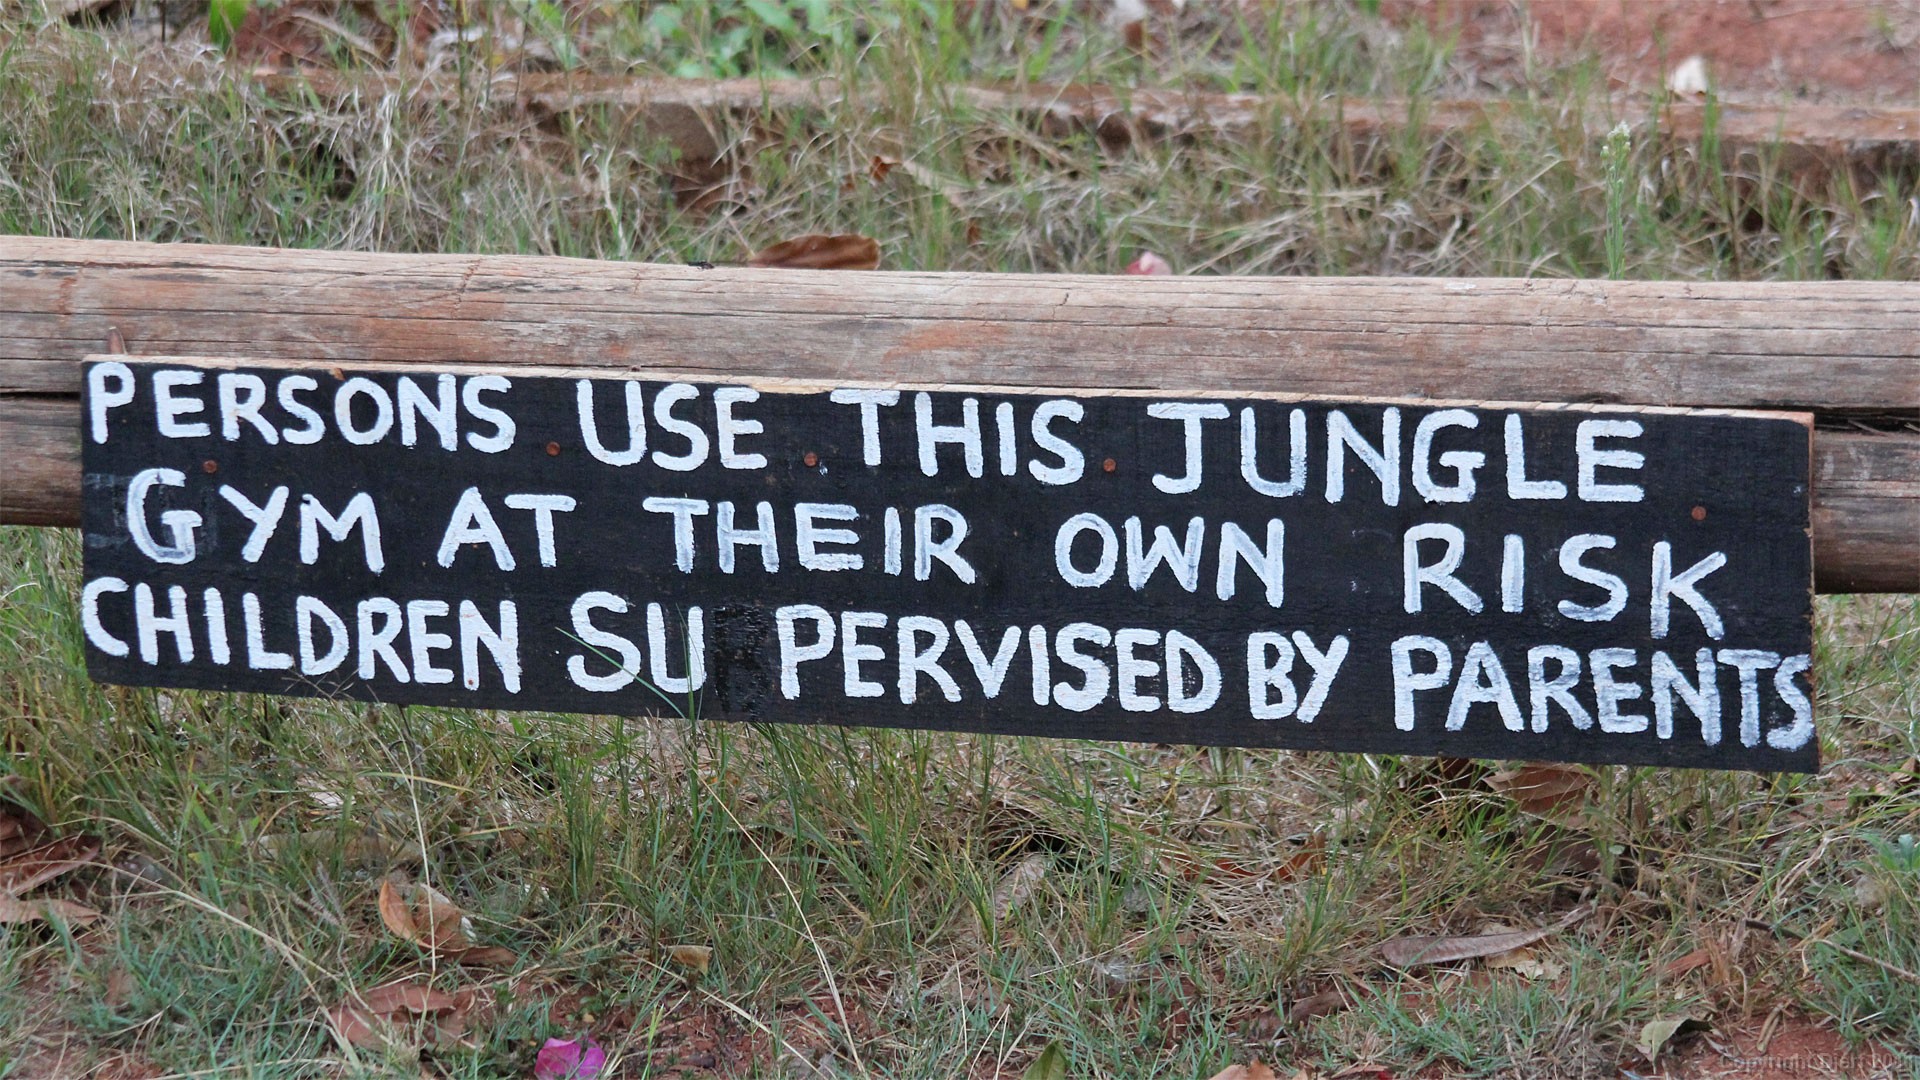 PERSONS USE THIS JUNGLE
GYM AT THEIR OWN RISK
CHILDREN SU PERVISED BY PARENTS